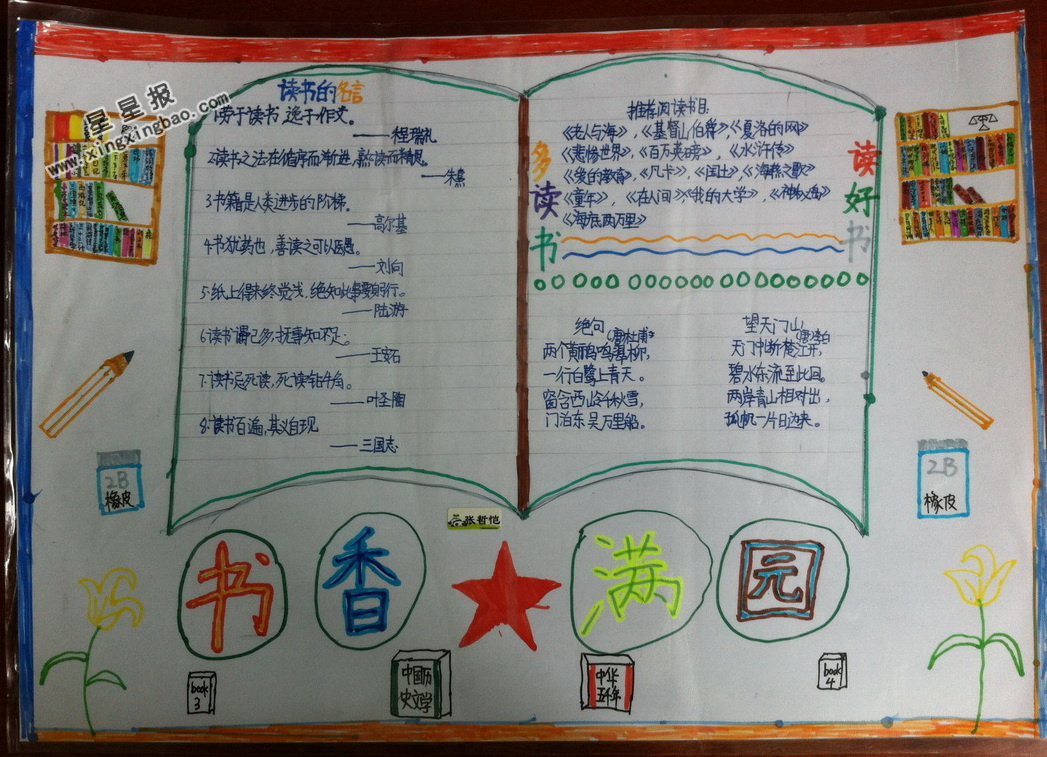 星星报
www.jxingxingbao.com
读书的名言
1劳于读书,逸于作文。
——程瑞礼
2.读书之法在循序而渐进,熟读而精思。
——朱熹
3书籍是人类进步的阶梯。
——高尔基
4书犹药也,善读之可以医愚。
——刘向
5.纸上得来终觉浅,绝知此事要躬行。
——陆游
6读书谓已多,抚事知不足。
——王安石
7.读书忌死读,死读钻牛角。
——叶圣陶
8.读书百遍,其义自现
——三国志
推荐阅读书目:
《老人与海》,《基督山伯爵》,《夏洛的网》
《悲惨世界》,《百万英磅》,《水浒传》
《爱的教育》,《凡卡》,《国土》,《海燕之歌》
《童年》,《在人间》《我的大学》,《神秘岛》
《海底两万里》
多读书
读好书
绝句(唐杜甫)
两个黄丽鸣翠柳,
一行白鹭上青天。
窗含西山岭千秋雪,
门泊东吴万里船。
望天门山(唐李白)
天门中断楚江开,
碧水东流至此回。
两岸青山相对出,
孤帆一片日边来。
2B
橡皮
2B
橡皮
张哲恺
书香满园
book
3
中国历
史文学
中华
五千年
book
4